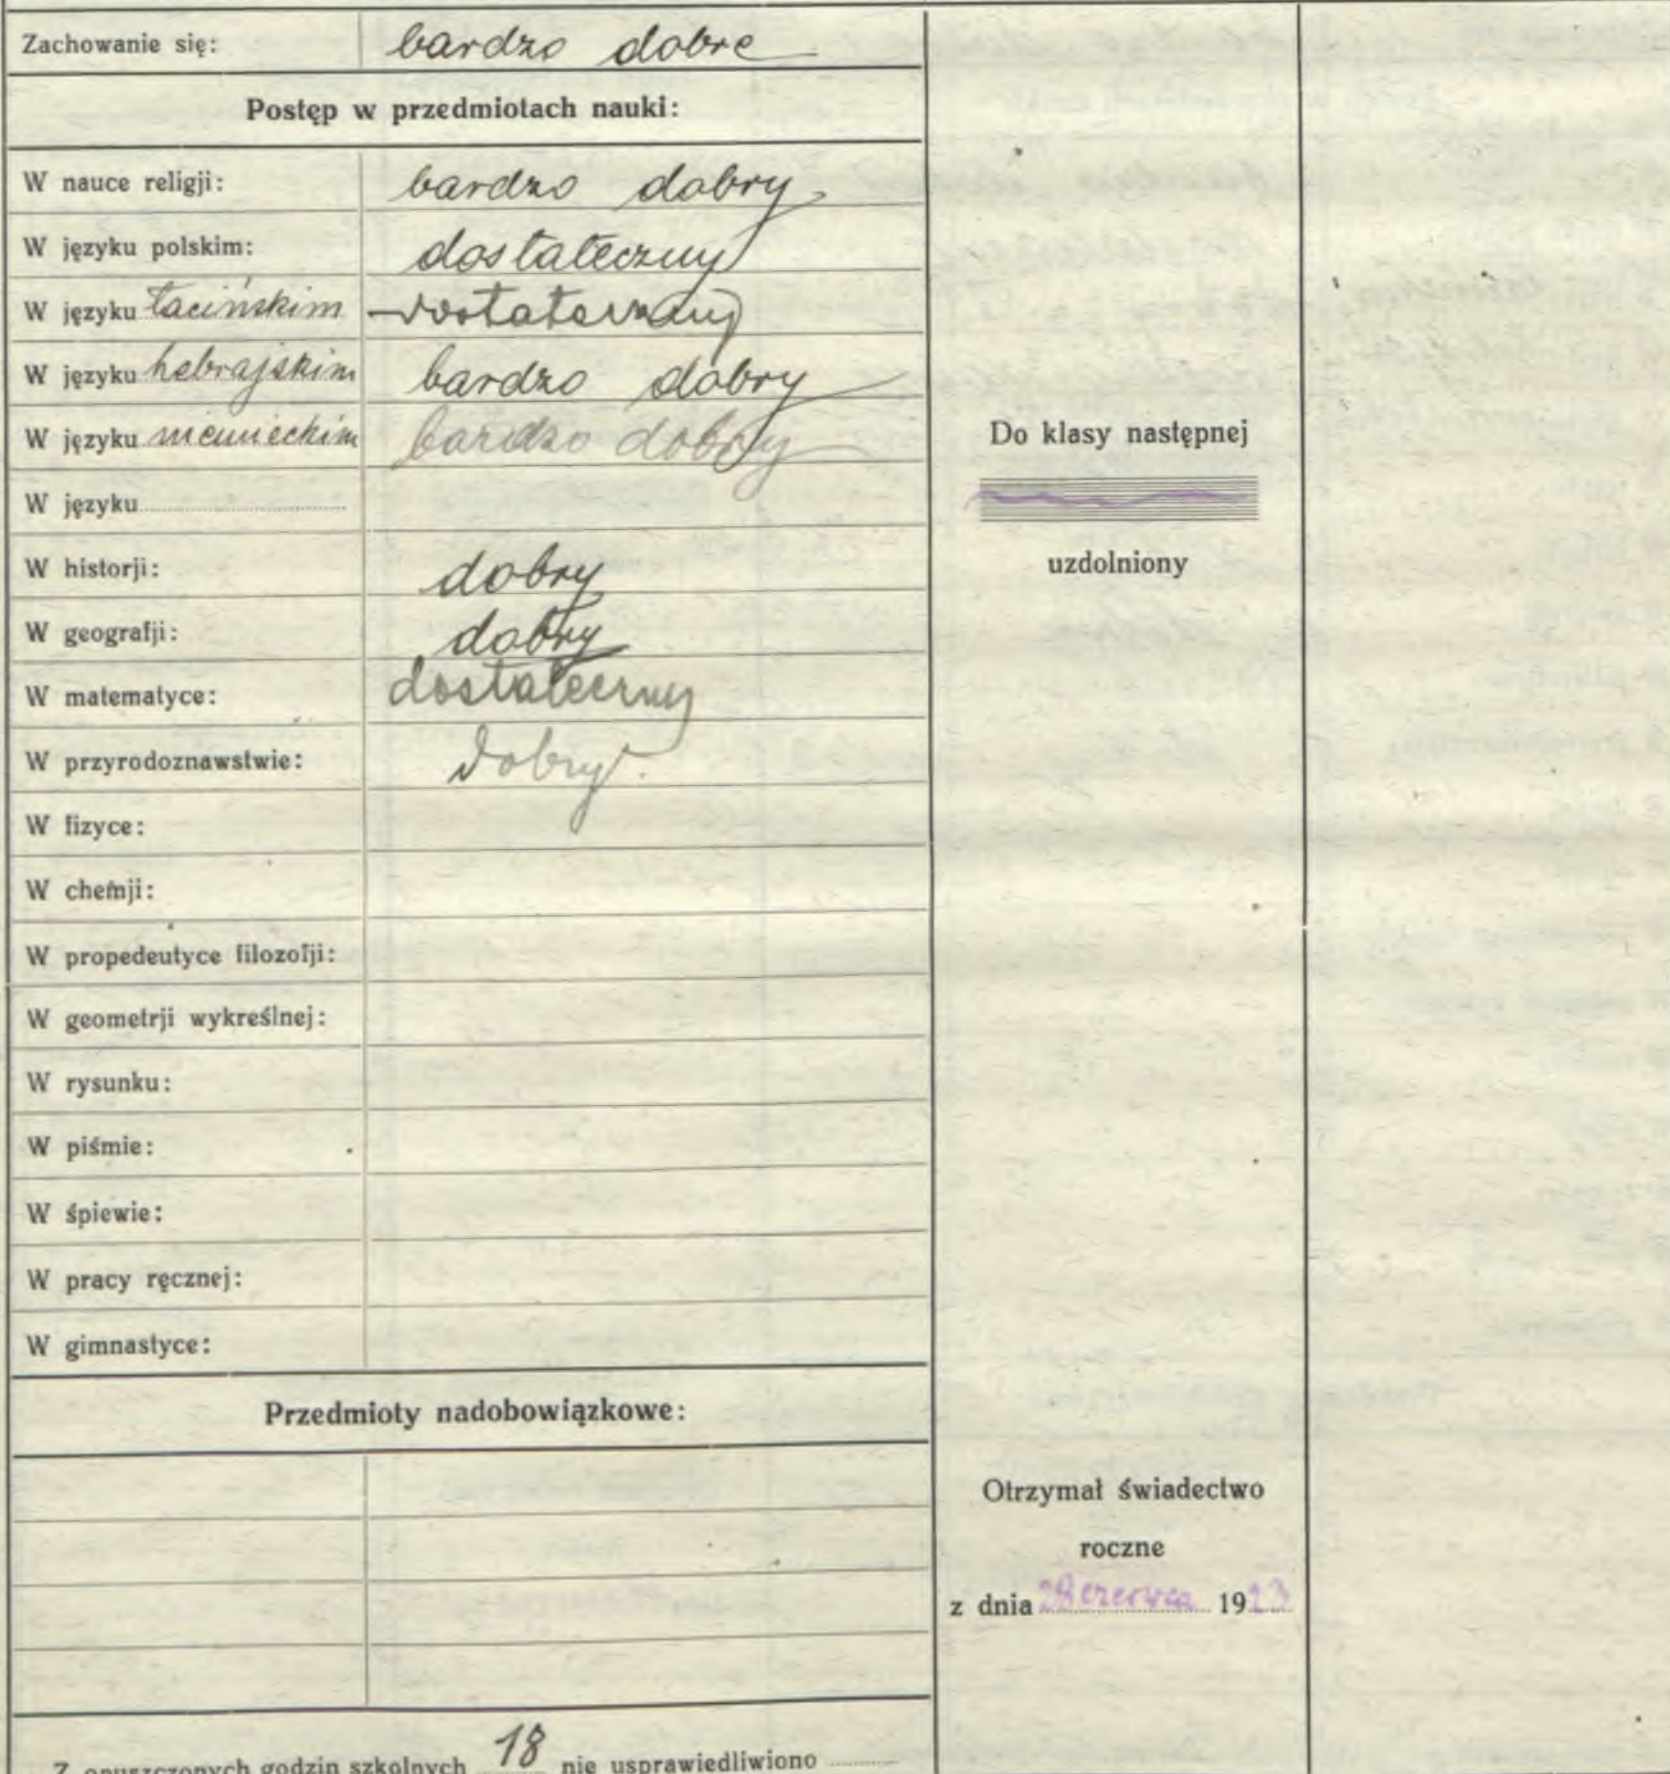 Zachowanie się: bardzo dobre
Postęp w przedmiotach nauki:
W nauce religji: bardzo dobry
W języku polskim: dostateczny
W języku łacińskim dostateczny
W języku hebrajskim bardzo dobry
W języku niemieckim bardzo dobry
W języku
W historji: dobry
W geografji: dobry
W matematyce: dostateczny
W przyrodoznawstwie: dobry.
W fizyce:
W chemji:
W propedeutyce filozofji:
W geometrji wykreślnej:
W rysunku:
W piśmie:
W śpiewie:
W pracy ręcznej:
W gimnastyce:
Przedmioty nadobowiązkowe:
Z opuszczonych godzin szkolnych 18 nie usprawiedliwiono
Do klasy następnej
uzdolniony
Otrzymał świadectwo
roczne
z dnia 28 czerwca 1923